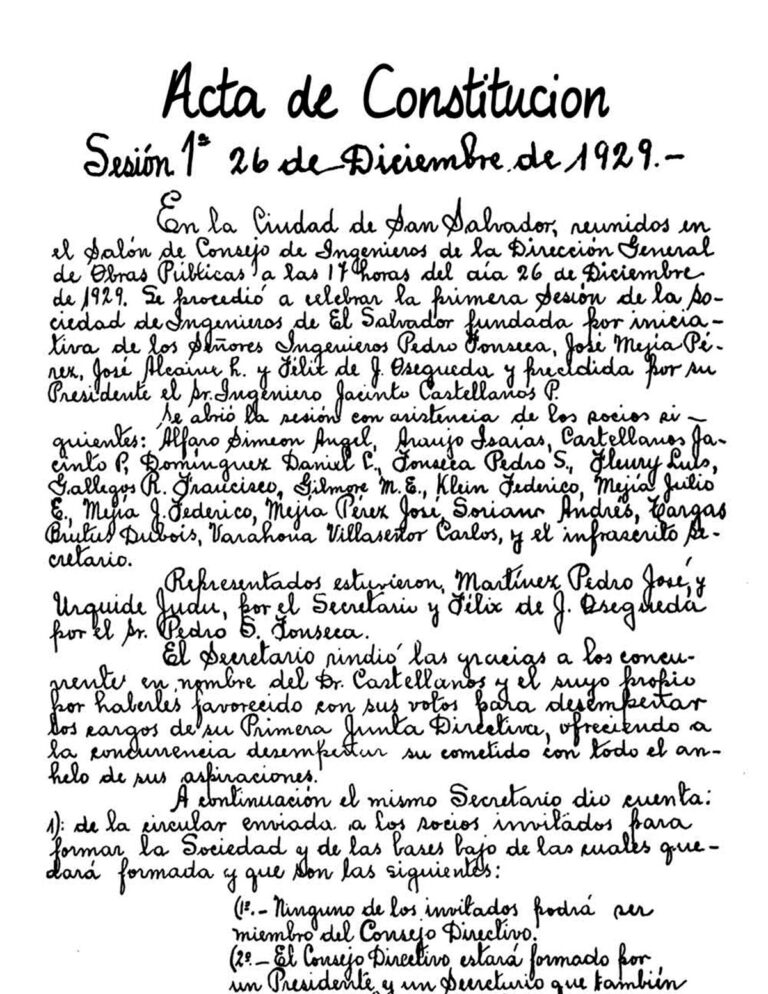 Acta de Constitucion
Sesión 1ª 26 de Diciembre de 1929.-
En la Ciudad de San Salvador, reunidos en
el Salón de Consejo de Ingenieros de la Dirección General
de Obras Públicas a las 17 horas del día 26 de Diciembre
de 1929. Se procedió a celebrar la primera Sesión de la So-
ciedad de Ingenieros de El Salvador fundada por inicia-
tiva de los Señores Ingenieros Pedro Fonseca, José Mejía Pé-
rez, José Alcaine h. y Félix de J. Osegueda y precidida por su
Presidente el Sr. Ingeniero Jacinto Castellanos P.
Se abrió la sesión con asistencia de los socios si-
guientes: Alfaro Simeon Angel, Araujo Isaías, Castellanos Ja-
cinto P, Domínguez Daniel C., Fonseca Pedro S., Fleury Luis,
Gallegos R. Francisco, Gilmore M.E., Klein Federico, Mejía Julio
E., Mejía J. Federico, Mejía Pérez José, Soriano Andrés, Vargas
Brutus Dubois, Varahona Villaseñor Carlos, y el infrascrito Se-
cretario.
Representados estuvieron, Martínez Pedro José, y
Urquide Judu, por el Secretario y Félix de J. Osegueda
por el Sr. Pedro S. Fonseca.
El Secretario rindió las gracias a los concu-
rrente en nombre del Dr. Castellanos y el suyo propio
por haberles favorecido con sus votos para desempeñar
los cargos de su Primera Junta Directiva, ofreciendo a
la concurrencia desempeñar su cometido con todo el an-
helo de sus aspiraciones.
A continuación el mismo Secretario dio cuenta:
1): de la circular enviada a los socios invitados para
formar la Sociedad y de las bases bajo de las cuales que-
dará formada y que son las siguientes:
(1º.- Ninguno de los invitados podrá ser
miembro del Consejo Directivo.
(2º.- El Consejo Directivo estará formado por
un Presidente y un Secretario que también